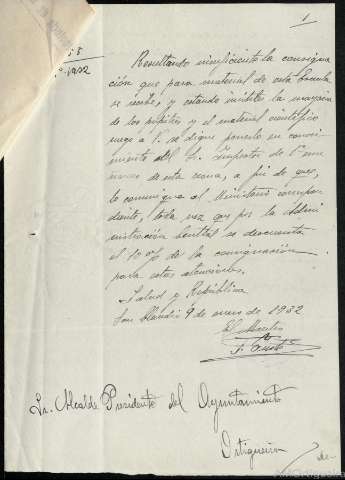 1
1932
Resultando insuficiente la consigna
ción que para material de esta Escuela
se recibe, y estando inútiles la mayoría
de los pupitres y el material científico
ruego a V. se digne ponerlo en conoci
miento del Sr. Inspector de 1ª ense
ñanza de esta zona, a fin de que,
lo comunique al Ministerio correspon
diente, toda vez que por la Admi
nistración Central se descuenta
el 10 o/o de la consignación
para estas atenciones.
Salud y República
San Claudio 9 de enero de 1932
El Maestro
Sr. Alcalde Presidente del Ayuntamiento
de
Ortigueira